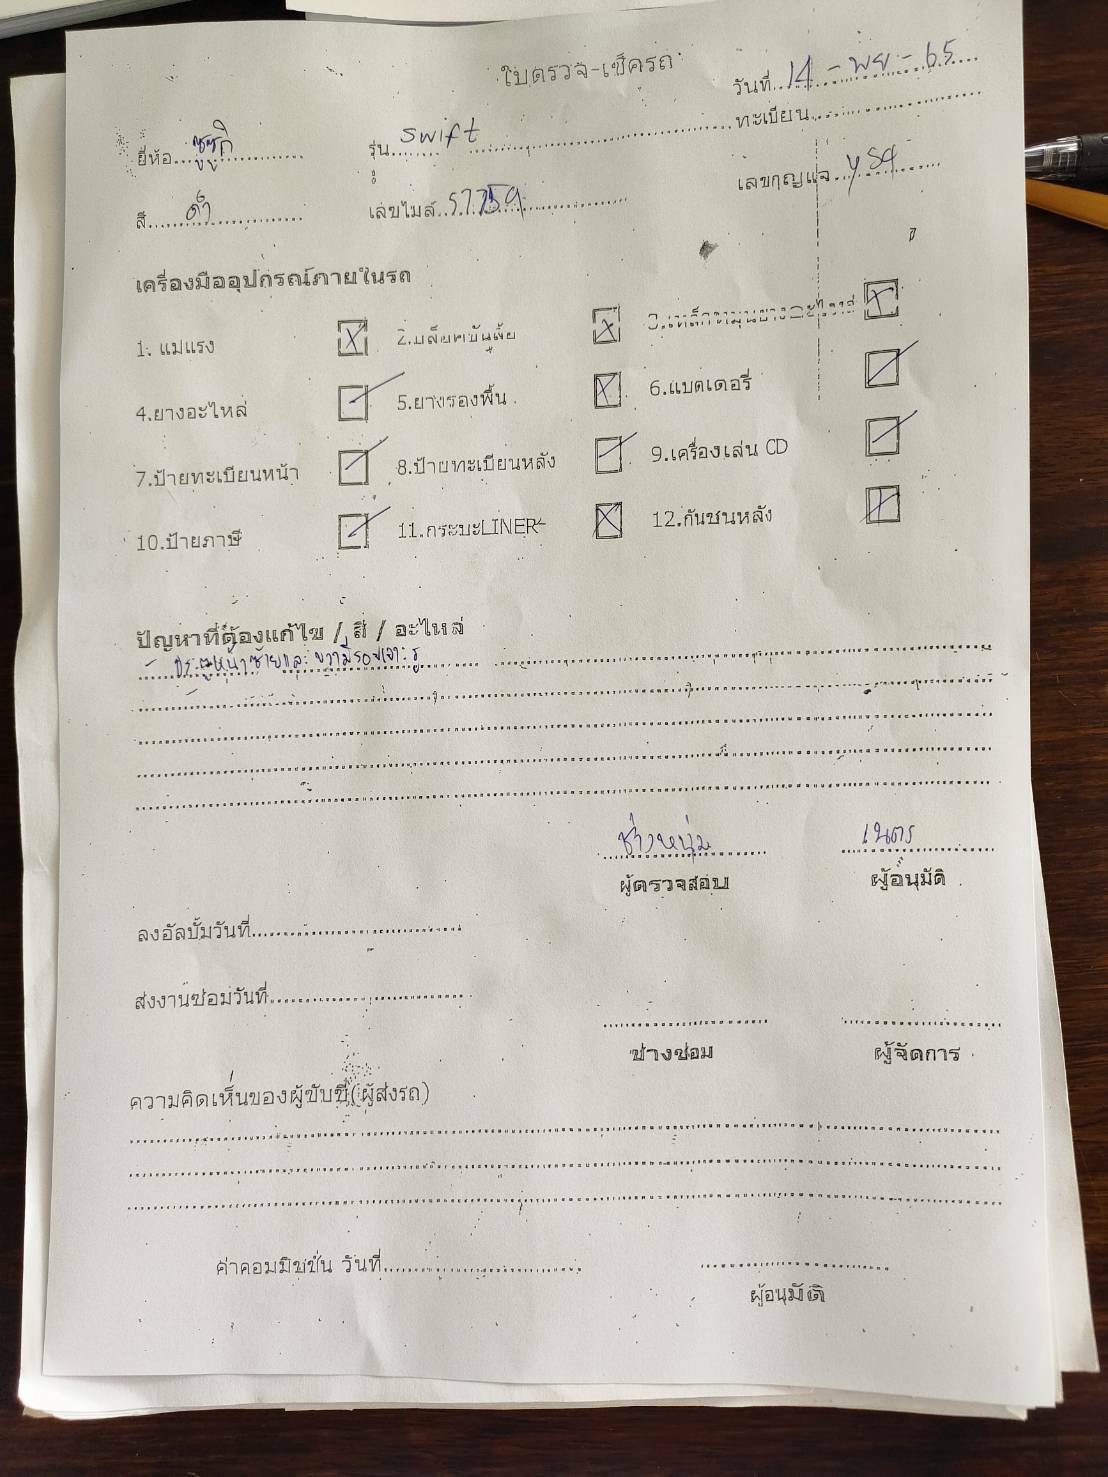 ใบตรวจ-เช็ครถ
วันที่ 14 - พย - 65
ยี่ห้อ ซูซูกิ รุ่น swift ทะเบียน
สี ดำ เลขไมล์ เลขกุญแจ
เครื่องมืออุปกรณ์ภายในรถ
1. แม่แรง 2.บล็อคขันล้อ
4.ยางอะไหล่ 5.ยางรองพื้น 6.แบตเตอรี่
7.ป้ายทะเบียนหน้า 8.ป้ายทะเบียนหลัง 9.เครื่องเล่น CD
10.ป้ายภาษี 11.กระบะLINER 12.กันชนหลัง
ปัญหาที่ต้องแก้ไข / สี / อะไหล่
ประตูหน้าซ้ายและขวามีรอยเจาะรู
ช่างหนุ่ม เนตร
ผู้ตรวจสอบ ผู้อนุมัติ
ลงอัลบั้มวันที่
ส่งงานซ่อมวันที่
ช่างซ่อม ผู้จัดการ
ความคิดเห็นของผู้ขับขี่(ผู้ส่งรถ)
ค่าคอมมิชชั่น วันที่
ผู้อนุมัติ